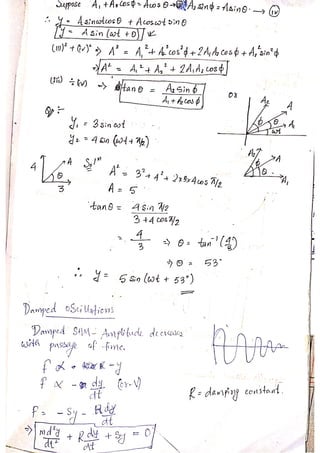 Suppose A₁ + A₂ cos ϕ = A cos θ → (iii) A₂ sin ϕ = A sin θ → (iv)
∴ y = A sin ωt cos θ + A cos ωt sin θ
y = A sin (ωt + θ)
(iii)² + (iv)² ⇒ A² = A₁² + A₂² cos² ϕ + 2A₁A₂ cos ϕ + A₂² sin² ϕ
⇒ A² = A₁² + A₂² + 2A₁A₂ cos ϕ
⇒ tan θ = A₂ sin ϕ / A₁ + A₂ cos ϕ
OR
A₂ A θ ωt A₁
Q :-
y₁ = 3 sin ωt
y₂ = 4 sin (ωt + π/2)
A₂ A θ A₁
4 A θ 3
Solⁿ A² = 3² + 4² + 2×3×4 cos π/2
A = 5
tan θ = 4 sin π/2 / 3 + 4 cos π/2
= 4/3 ⇒ θ = tan⁻¹ (4/3)
⇒ θ = 53°
∴ y = 5 sin (ωt + 53°)
Damped Oscillations
Damped SHM - Amplitude decreases
with passage of time.
f ∝ -y
f ∝ - dy/dt (or -V)
R = damping constant.
F = - Sy - R dy/dt
⇒ m d²y/dt² + R dy/dt + Sy = 0